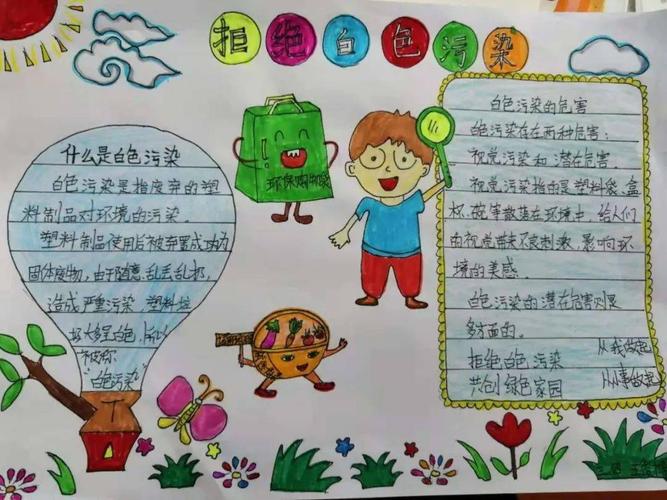 拒绝白色污染
什么是白色污染
白色污染是指废弃的塑
料制品对环境的污染。
塑料制品使用后被弃置成为
固体废物,由于随意乱丢乱扔,
造成严重污染 塑料垃
圾大多呈白色,所以
被称
"白色污染"
环保购物袋
白色污染的危害
白色污染存在两种危害:
视觉污染和潜在危害.
视觉污染指的是塑料袋、盒
杯、碗等散落在环境中,给人们
的视觉带来不良刺激,影响环
境的美感.
白色污染的潜在危害则是
多方面的.
拒绝白色污染 从我做起
共创绿色家园 从小事做起